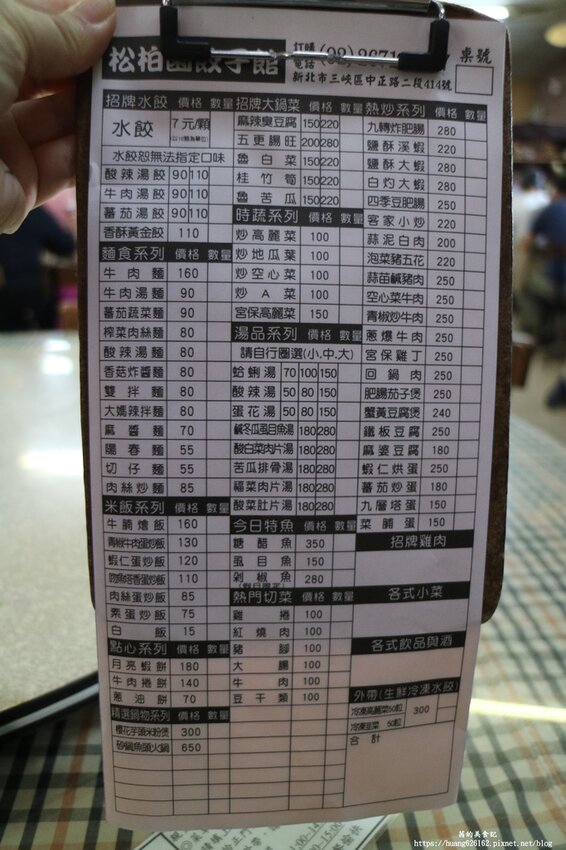 松柏園餃子館
訂購電話 (02)2671
新北市三峽區中正路二段414號
桌號
招牌水餃 價格 數量
水餃 7元/顆
水餃恕無法指定口味
酸辣湯餃 90 110
牛肉湯餃 90 110
蕃茄湯餃 90 110
香酥黃金餃 110
麵食系列 價格 數量
牛肉麵 160
牛肉湯麵 90
蕃茄蔬菜麵 90
榨菜肉絲麵 80
酸辣湯麵 80
香菇炸醬麵 80
雙拌麵 80
大媽辣拌麵 80
麻醬麵 70
陽春麵 55
切仔麵 55
肉絲炒麵 85
米飯系列 價格 數量
牛腩燴飯 160
青椒牛肉蛋炒飯 130
蝦仁蛋炒飯 120
吻魚塔香蛋炒飯 110
肉絲蛋炒飯 85
素蛋炒飯 75
白飯 15
點心系列 價格 數量
月亮蝦餅 180
牛肉捲餅 140
蔥油餅 70
精選鍋物系列 價格 數量
櫻花芋頭米粉煲 300
砂鍋魚頭火鍋 650
招牌大鍋菜 價格 數量
麻辣臭豆腐 150 220
五更腸旺 200 280
魯白菜 150 220
桂竹筍 150 220
魯苦瓜 150 220
時蔬系列 價格 數量
炒高麗菜 100
炒地瓜葉 100
炒空心菜 100
炒A菜 100
宮保高麗菜 150
湯品系列 價格 數量
請自行圈選(小.中.大)
蛤蜊湯 70 100 150
酸辣湯 50 80 150
蛋花湯 50 80 150
鹹冬瓜虱目魚湯 180 280
酸白菜肉片湯 180 280
苦瓜排骨湯 180 280
福菜肉片湯 180 280
酸菜肚片湯 180 280
今日特魚 價格 數量
糖醋魚 350
虱目魚 150
剁椒魚 280
熱門切菜 價格 數量
雞捲 100
紅燒肉 100
豬腳 100
大腸 100
牛肉 100
豆干類 100
熱炒系列 價格 數量
九轉炸肥腸 280
鹽酥溪蝦 220
鹽酥大蝦 280
白灼大蝦 280
四季豆肥腸 250
客家小炒 220
蒜泥白肉 200
泡菜豬五花 220
蒜苗鹹豬肉 250
空心菜牛肉 250
青椒炒牛肉 250
蔥爆牛肉 250
宮保雞丁 250
回鍋肉 250
肥腸茄子煲 250
蟹黃豆腐煲 240
鐵板豆腐 250
麻婆豆腐 180
蝦仁烘蛋 250
蕃茄炒蛋 180
九層塔蛋 150
菜脯蛋 150
招牌雞肉
各式小菜
各式飲品與酒
外帶(生鮮冷凍水餃)
冷凍高麗菜50粒 300
冷凍韭菜 50粒
合計
茜的美食記
https://huang626162.pixnet.net/blog